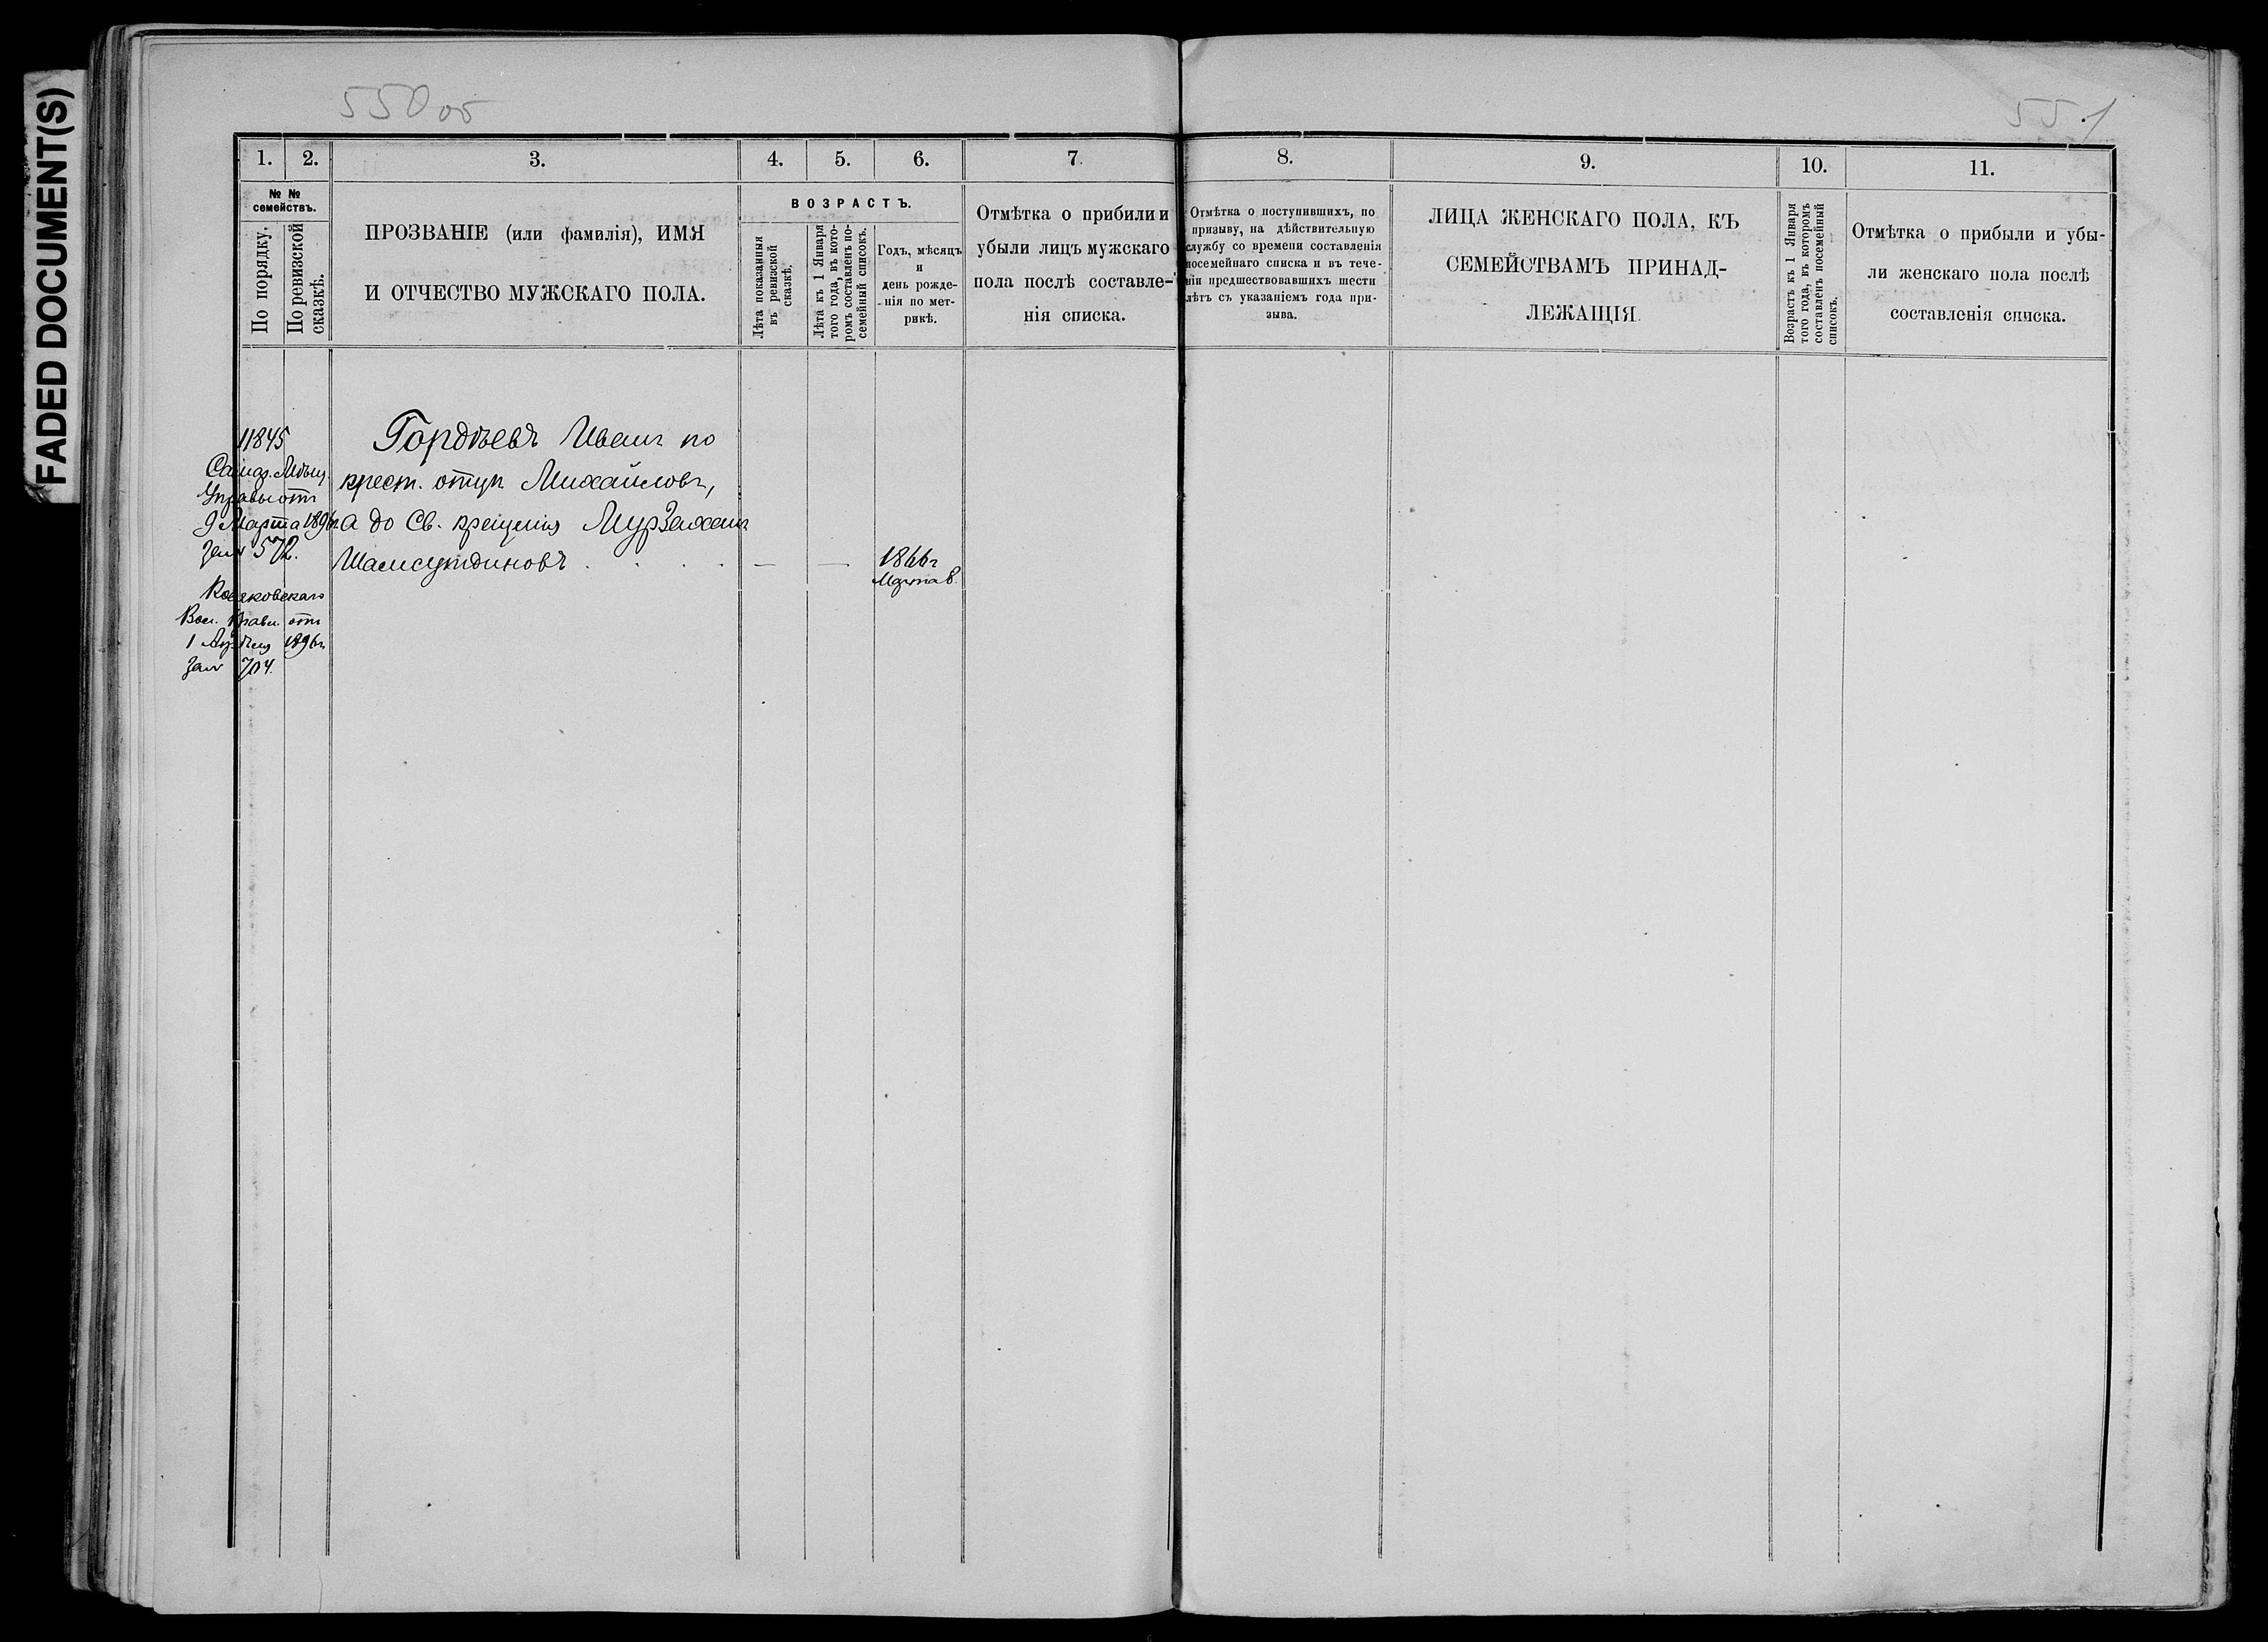 FADED DOCUMENT(S)
550 об
551
1. 2. 3. 4. 5. 6. 7. 8. 9. 10. 11.
№ №
семействъ.
По порядку.
По ревизской
сказкѣ.
ПРОЗВАНІЕ (или фамилія), ИМЯ
И ОТЧЕСТВО МУЖСКАГО ПОЛА.
ВОЗРАСТЪ.
Лѣта показанія
въ ревизской
сказкѣ.
Лѣта къ 1 Января
того года, въ кото-
ромъ составленъ по-
семейный списокъ.
Годъ, мѣсяцъ
и
день рожде-
нія по мет-
рикѣ.
Отмѣтка о прибыли и
убыли лицъ мужскаго
пола послѣ составле-
нія списка.
Отмѣтка о поступившихъ, по
призыву, на дѣйствительную
службу со времени составленія
посемейнаго списка и въ тече-
ніи предшествовавшихъ шести
лѣтъ съ указаніемъ года при-
зыва.
ЛИЦА ЖЕНСКАГО ПОЛА, КЪ
СЕМЕЙСТВАМЪ ПРИНАД-
ЛЕЖАЩІЯ.
Возрастъ къ 1 Января
того года, въ которомъ
составленъ посемейный
списокъ.
Отмѣтка о прибыли и убы-
ли женскаго пола послѣ
составленія списка.
11845
Управы отъ
9 Марта 1896г.
572.
Вол. Правл. отъ
1 Апрѣля 1896г.
704.
Гордѣевъ Иванъ по
крест. отцу Михайловъ,
а до Св. крещенія Мурзахан
Шамсутдиновъ . . . . — —
1866г
Марта 8.